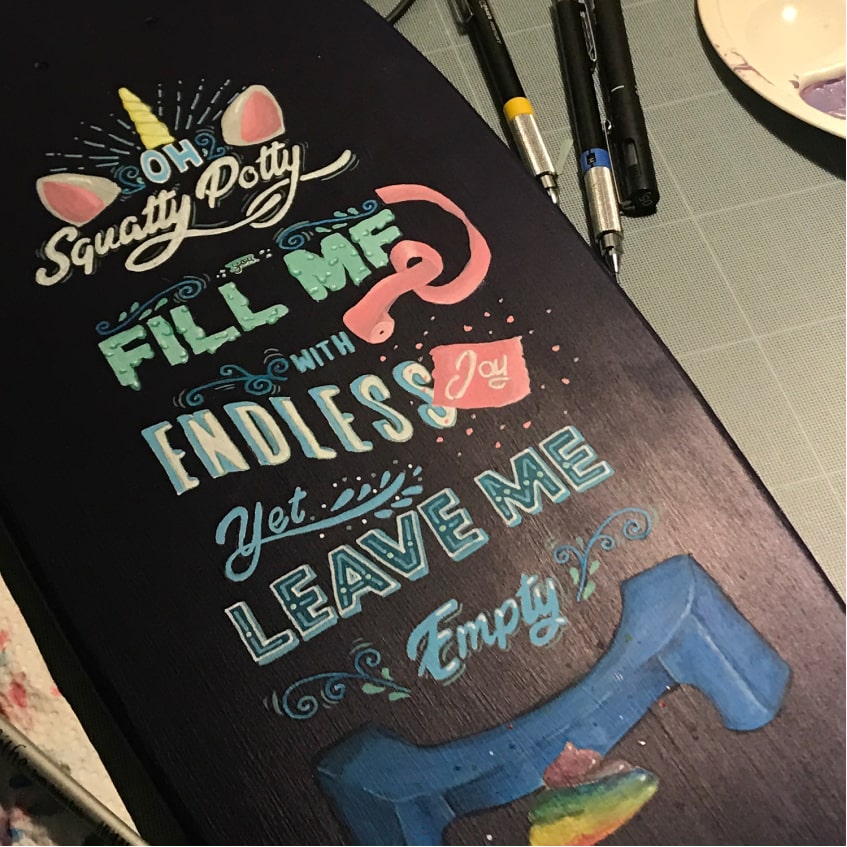 OH
Squatty Potty
you
FILL ME
WITH
ENDLESS Joy
Yet
LEAVE ME
Empty